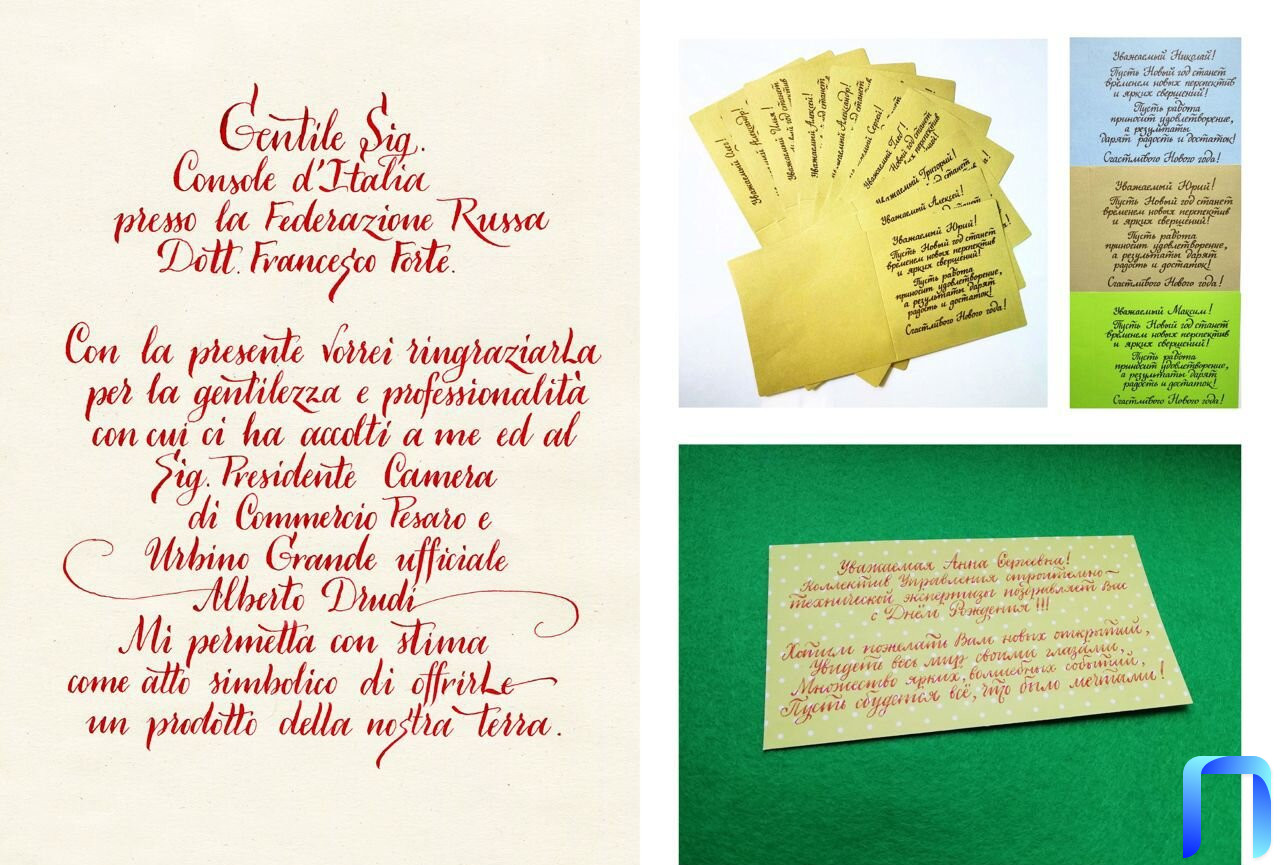 Gentile Sig.
Console d'Italia
presso la Federazione Russa
Dott. Francesco Forte.
Con la presente vorrei ringraziarLa
per la gentilezza e professionalità
con cui ci ha accolti a me ed al
Sig. Presidente Camera
di Commercio Pesaro e
Urbino Grande ufficiale
Alberto Drudi
Mi permetta con stima
come atto simbolico di offrirLe
un prodotto della nostra terra.
Уважаемый Олег!
Уважаемый Алексей!
Александр!
Сергей!
Уважаемый Глеб!
Новый год станет
Уважаемый Григорий!
Уважаемый Алексей!
Уважаемый Юрий!
Пусть Новый год станет
временем новых перспектив
и ярких свершений!
Пусть работа
приносит удовлетворение,
а результаты дарят
радость и достаток!
Счастливого Нового года!
Уважаемый Николай!
Пусть Новый год станет
временем новых перспектив
и ярких свершений!
Пусть работа
приносит удовлетворение,
а результаты
дарят радость и достаток!
Счастливого Нового года!
Уважаемый Юрий!
Пусть Новый год станет
временем новых перспектив
и ярких свершений!
Пусть работа
приносит удовлетворение,
а результаты дарят
радость и достаток!
Счастливого Нового года!
Уважаемый Максим!
Пусть Новый год станет
временем новых перспектив
и ярких свершений!
Пусть работа
приносит удовлетворение,
а результаты дарят
радость и достаток!
Счастливого Нового года!
Уважаемая Анна Сергеевна!
Коллектив Управления строительно-
технической экспертизы поздравляет Вас
с Днём Рождения!!!
Хотим пожелать Вам новых открытий,
Увидеть весь мир своими глазами,
Множество ярких, волшебных событий,
Пусть сбудется всё, что было мечтами!